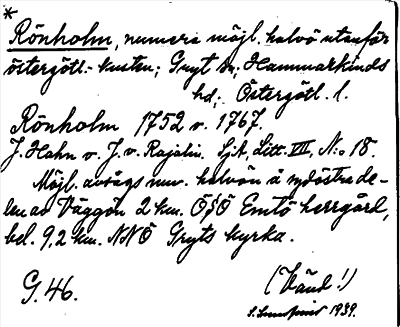 *
Rönholm, numera möjl. halvö utanför
östergötl.-kusten; Gryt sn, Hammarkinds
hd; Östergötl. l.
Rönholm 1752 o. 1767.
J. Hahn o. J. v. Rajalin. SjA, Litt. VII, N:o 18.
Möjl. avsågs nuv. halvön å sydöstra de-
len av Väggön 2 km. OSO Emtö herrgård,
bel. 9,2 km. NNO Gryts kyrka.
G. 46.
(Vänd!)
1939.